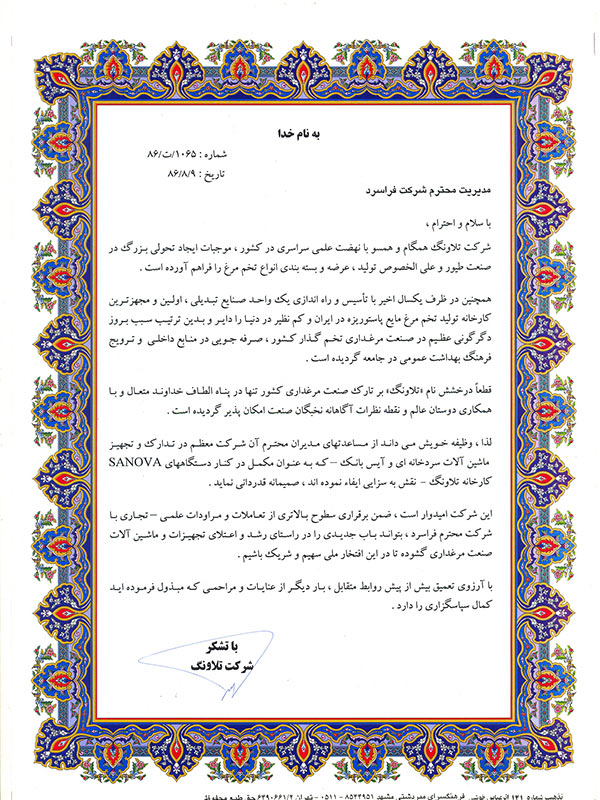 به نام خدا
شماره : ۱۰۶۵/ت/۸۶
تاریخ : ۸۶/۸/۹
مدیریت محترم شرکت فراسرد
با سلام و احترام ،
شرکت تلاونگ همگام و همسو با نهضت علمی سراسری در کشور ، موجبات ایجاد تحولی بزرگ در
صنعت طیور و علی الخصوص تولید ، عرضه و بسته بندی انواع تخم مرغ را فراهم آورده است .
همچنین در ظرف یکسال اخیر با تأسیس و راه اندازی یک واحد صنایع تبدیلی ، اولین و مجهزترین
کارخانه تولید تخم مرغ مایع پاستوریزه در ایران و کم نظیر در دنیا را دایر و بدین ترتیب سبب بروز
دگرگونی عظیم در صنعت مرغداری تخم گذار کشور ، صرفه جویی در منابع داخلی و ترویج
فرهنگ بهداشت عمومی در جامعه گردیده است .
قطعاً درخشش نام «تلاونگ» بر تارک صنعت مرغداری کشور تنها در پناه الطاف خداوند متعال و با
همکاری دوستان عالم و نقطه نظرات آگاهانه نخبگان صنعت امکان پذیر گردیده است .
لذا ، وظیفه خویش می داند از مساعدتهای مدیران محترم آن شرکت معظم در تدارک و تجهیز
ماشین آلات سردخانه ای و آیس بانک – که به عنوان مکمل در کنار دستگاههای SANOVA
کارخانه تلاونگ - نقش به سزایی ایفاء نموده اند ، صمیمانه قدردانی نماید .
این شرکت امیدوار است ، ضمن برقراری سطوح بالاتری از تعاملات و مراودات علمی – تجاری با
شرکت محترم فراسرد ، بتواند باب جدیدی را در راستای رشد و اعتلای تجهیزات و ماشین آلات
صنعت مرغداری گشوده تا در این افتخار ملی سهیم و شریک باشیم .
با آرزوی تعمیق بیش از پیش روابط متقابل ، بار دیگر از عنایات و مراحمی که مبذول فرموده اید
کمال سپاسگزاری را دارد .
با تشکر
شرکت تلاونگ